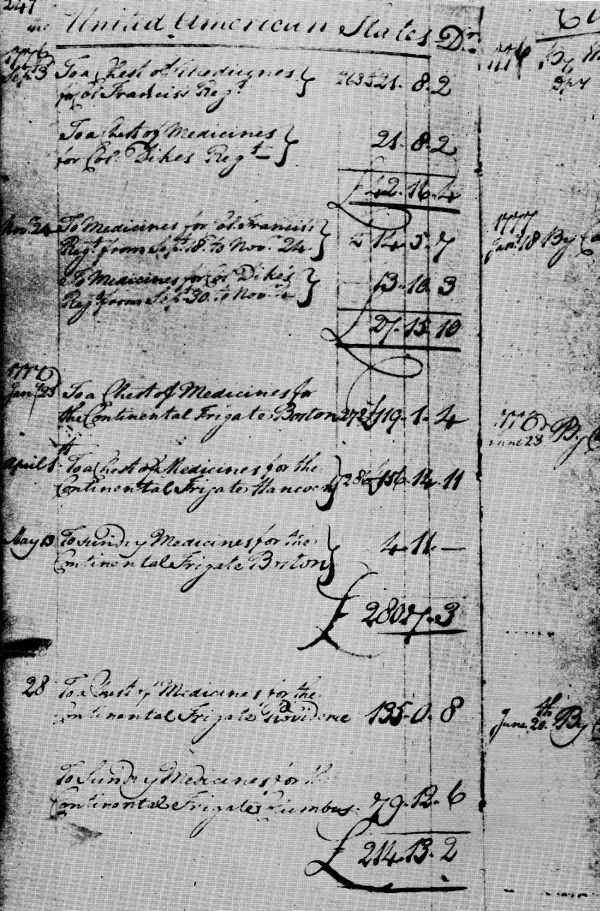 247
the United American States Dr
1776
Sept 3 To a Chest of Medicynes
for Col. Franciss Regt. 263 £21. 8. 2
To a Chest of Medicines
for Col. Dikes Regt 21. 8. 2
£42. 16. 4
Novr 24 To Medicines for Col. Franciss
Regt from Sept. 18. to Novr 24. 14. 5. 7
To Medicines for Col Dikes
Regt from Sept 30. to Novr 13. 10. 3
£27. 15. 10
1777
Jany 23 To a Chest of Medicines for
the Continental Frigate Boston 272 £119. 1. 4
April 1st To a Chest of Medicines for the
Continental Frigate Hancock 286 £156. 14. 11
May 13 To Sundry Medicines for the
Continental Frigate Boston 4. 11. —
£280. 7. 3
28 To a Chest of Medicines for the
Continental Frigate Providence 135. 0. 8
To Sundry Medicines for th
Continental Frigate Columbus 79. 12. 6
£214. 13. 2
1776 By
1777
Jany 18 By
June 23 By
June 20th By